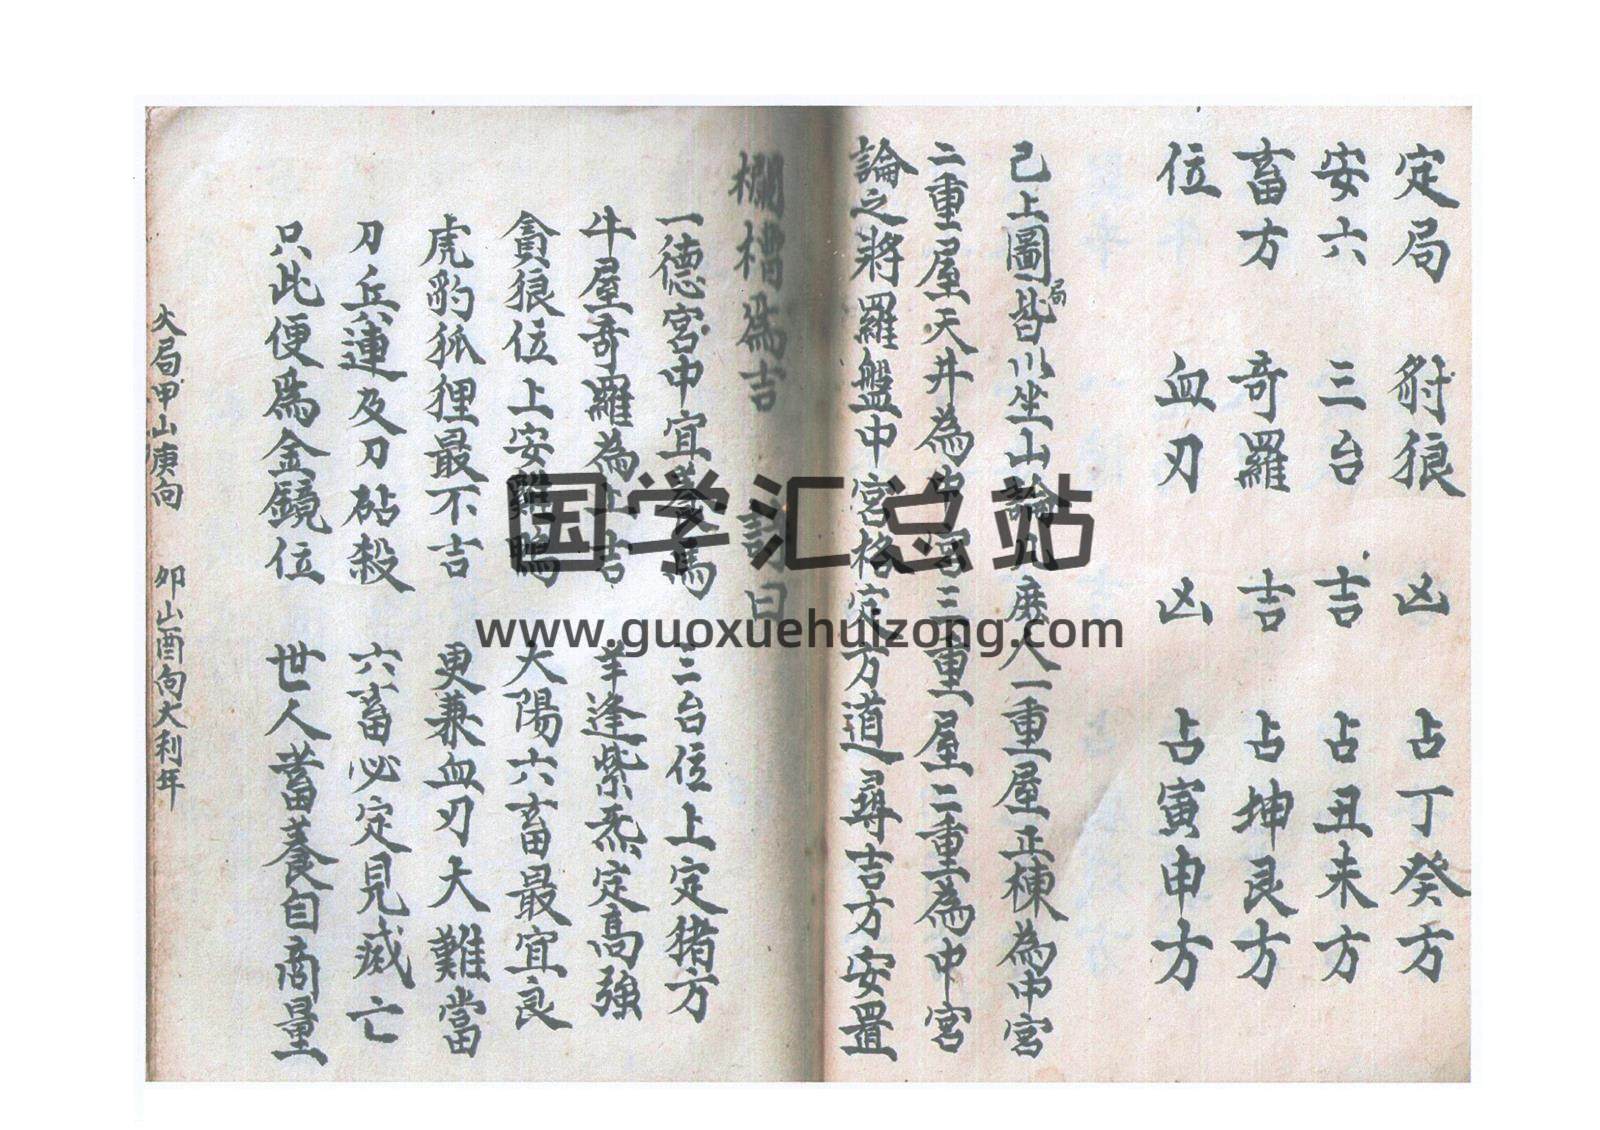 定局 豺狼 凶 占丁癸方
安六 三台 吉 占丑未方
畜方 奇羅 吉 占坤艮方
位 血刃 凶 占寅申方
己上圖局皆以坐山論凡庶人一重屋正棟為中宮
二重屋天井為中宮三重屋二重為中宮
論之將羅盤中宮格定方道尋吉方安置
欄槽爲吉 詩曰
一德宮中宜養馬 三台位上定猪方
牛屋奇羅為上吉 羊逢紫炁定高強
貪狼位上安雞鴨 太陽六畜最宜良
虎豹狐狸最不吉 更兼血刃大難當
刀兵連及刀砧殺 六畜必定見滅亡
只此便爲金鏡位 世人蓄養自商量
大局甲山庚向 卯山酉向大利年
国学汇总站
www.guoxuehuizong.com